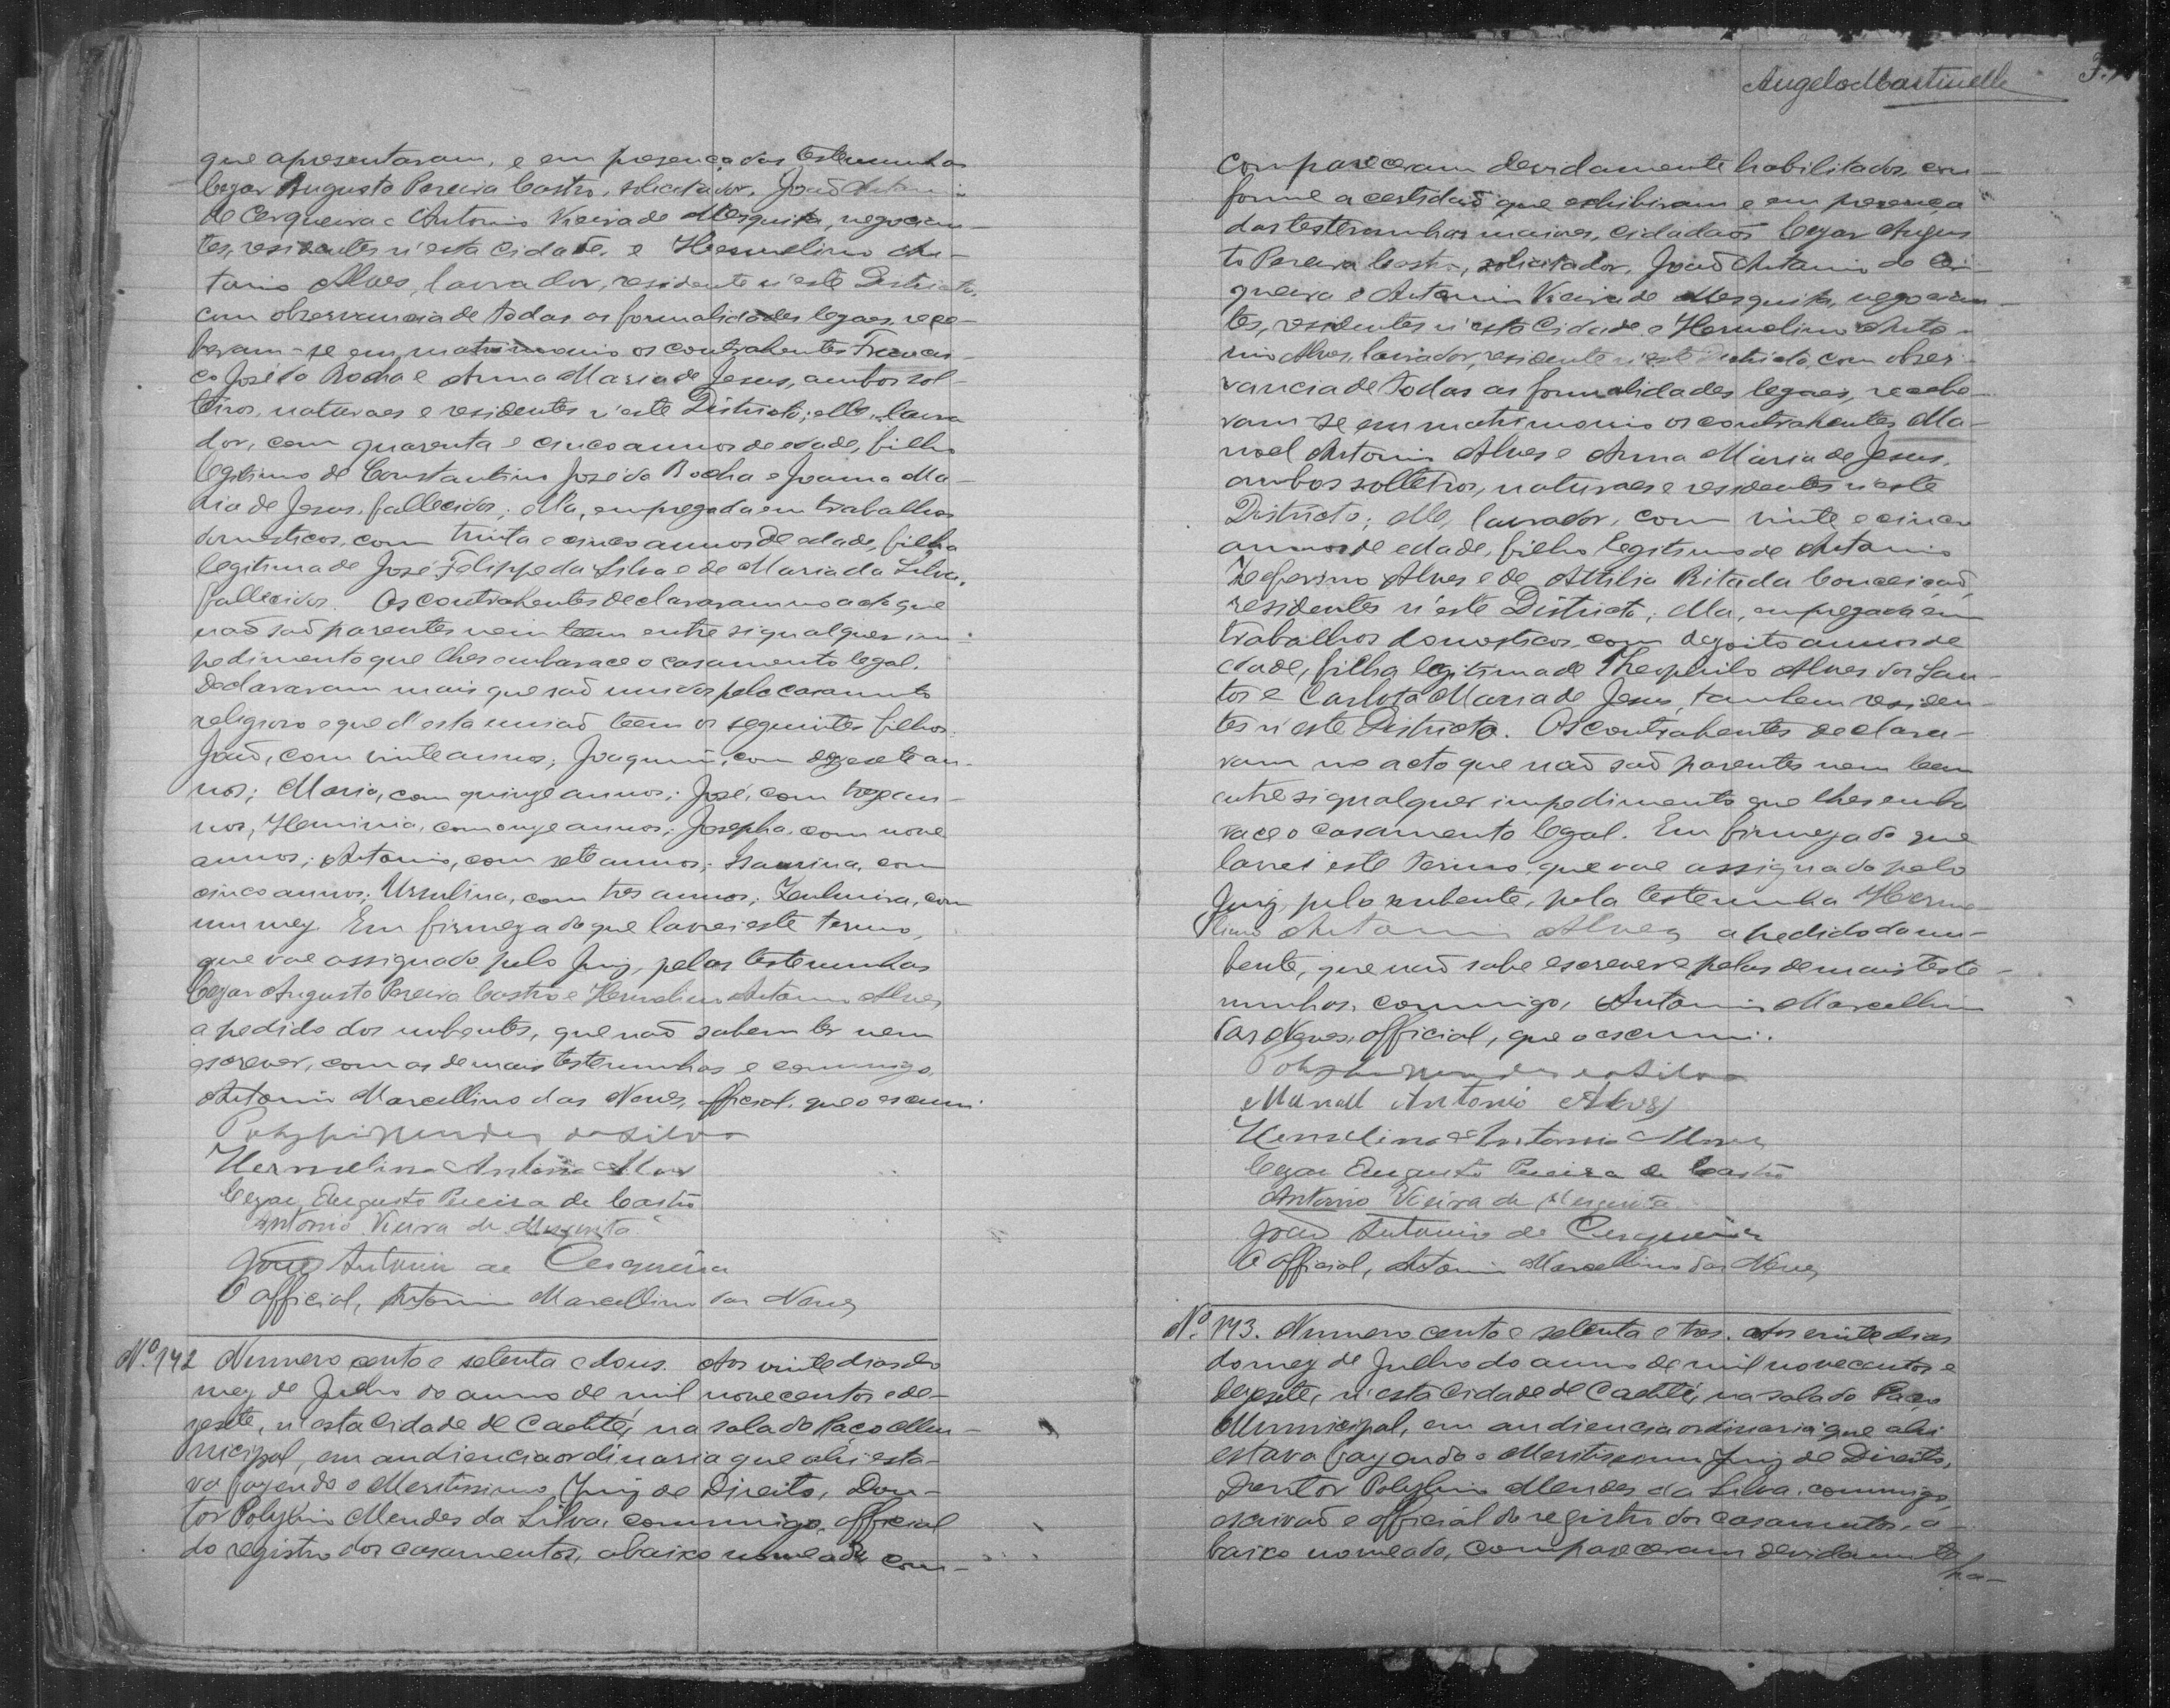 que apresentaram, e em presença das testemunhas
Cezar Augusto Pereira Castro, solicitador, João Antonio
de Cerqueira e Antonio Vieira de Mesquita, negocian-
tes, residentes n'esta Cidade, e Hermelino An-
tonio Alves, lavrador, residente n'este Districto,
com observancia de todas as formalidades legaes, rece-
beram-se em matrimonio os contrahentes Francis-
co José da Rocha e Anna Maria de Jesus, ambos sol-
teiros, naturaes e residentes n'este Districto; elle, lavra
dor, com quarenta e cinco annos de edade, filho
legitimo de Constantino José da Rocha e Joanna Ma-
ria de Jesus, fallecidos; ella, empregada em trabalhos
domesticos, com trinta e cinco annos de edade, filha
legitima de José Felippe da Silva e de Maria da Silva,
fallecidos. Os contrahentes declararam no acto que
naõ saõ parentes nem teem entre si qualquer im-
pedimento que lhes embarace o casamento legal.
Declararam mais que saõ unidos pelo casamento
religioso e que d'esta uniaõ teem os seguintes filhos:
João, com vinte annos; Joaquim, com dezesete an-
nos; Maria, com quinze annos; José, com treze an-
nos, Herminia, com onze annos; Josepha, com nove
annos; Antonio, com sete annos; Laurina, com
cinco annos; Ursulina, com tres annos; Zulmira, com
um mez. Em firmeza do que lavrei este termo,
que vae assignado pelo Juiz, pelas testemunhas
Cezar Augusto Pereira Castro e Hermelino Antonio Alves
a pedido dos nubentes, que naõ sabem ler nem
escrever, com as demais testemunhas e commigo,
Antonio Marcellino das Neves, official, que o escrevi.
Polybio Mendes da Silva
Hermelino Antonio Alves
Cezar Augusto Pereira de Castro
Antonio Vieira de Mesquita
João Antonio de Cerqueira
O official, Antonio Marcellino das Neves
Nº 172 Numero cento e setenta e dous. Aos vinte dias do
mez de Julho do anno de mil novecentos e de-
zesete, n'esta Cidade de Caeté, na sala do Paço Mu-
nicipal, em audiencia ordinaria que ahi esta-
va fazendo o Meritissimo Juiz de Direito, Dou-
tor Polybio Mendes da Silva, commigo, official
do registro dos casamentos, abaixo nomeado com-
Angelo Martinelli
compareceram devidamente habilitados, con-
forme a certidaõ que exhibiram e em presença
das testemunhas maiores, cidadaõs Cezar Augus
to Pereira Castro, solicitador, João Antonio de Cer-
queira e Antonio Vieira de Mesquita, negocian-
tes, residentes n'esta Cidade e Hermelino Anto-
nio Alves, lavrador, residente n'este Districto, com obser-
vancia de todas as formalidades legaes, recebe-
ram-se em matrimonio os contrahentes Ma-
noel Antonio Alves e Anna Maria de Jesus,
ambos solteiros, naturaes e residentes n'este
Districto; elle, lavrador, com vinte e cinco
annos de edade, filho legitimo de Antonio
Zeferino Alves e de Attilia Rita da Conceiçaõ,
residentes n'este Districto; ella, empregada em
trabalhos domesticos, com dezoito annos de
edade, filha legitima de Theophilo Alves dos San-
tos e Carlota Maria de Jesus, tambem residen-
tes n'este Districto. Os contrahentes declara-
ram no acto que naõ saõ parentes nem teem
entre si qualquer impedimento que lhes emba
race o casamento legal. Em firmeza do que
lavrei este termo, que vae assignado pelo
Juiz, pelo nubente, pela testemunha Herme
lino Antonio Alves a pedido da nu-
bente, que naõ sabe escrever e pelas demais teste-
munhas, commigo, Antonio Marcellino
das Neves, official, que o escrevi.
Polybio Mendes da Silva
Manoel Antonio Alves
Hermelino Antonio Alves
Cezar Augusto Pereira de Castro
Antonio Vieira de Mesquita
João Antonio de Cerqueira
O official, Antonio Marcellino das Neves
Nº 173. Numero cento e setenta e tres. Aos vinte dias
do mez de Julho do anno de mil novecentos e
dezesete, n'esta Cidade de Caeté, na sala do Paço
Municipal, em audiencia ordinaria que ahi
estava fazendo o Meritissimo Juiz de Direito,
Doutor Polybio Mendes da Silva, commigo,
escrivaõ e official do registro dos casamentos, a-
baixo nomeado, compareceram devidamente
ha-